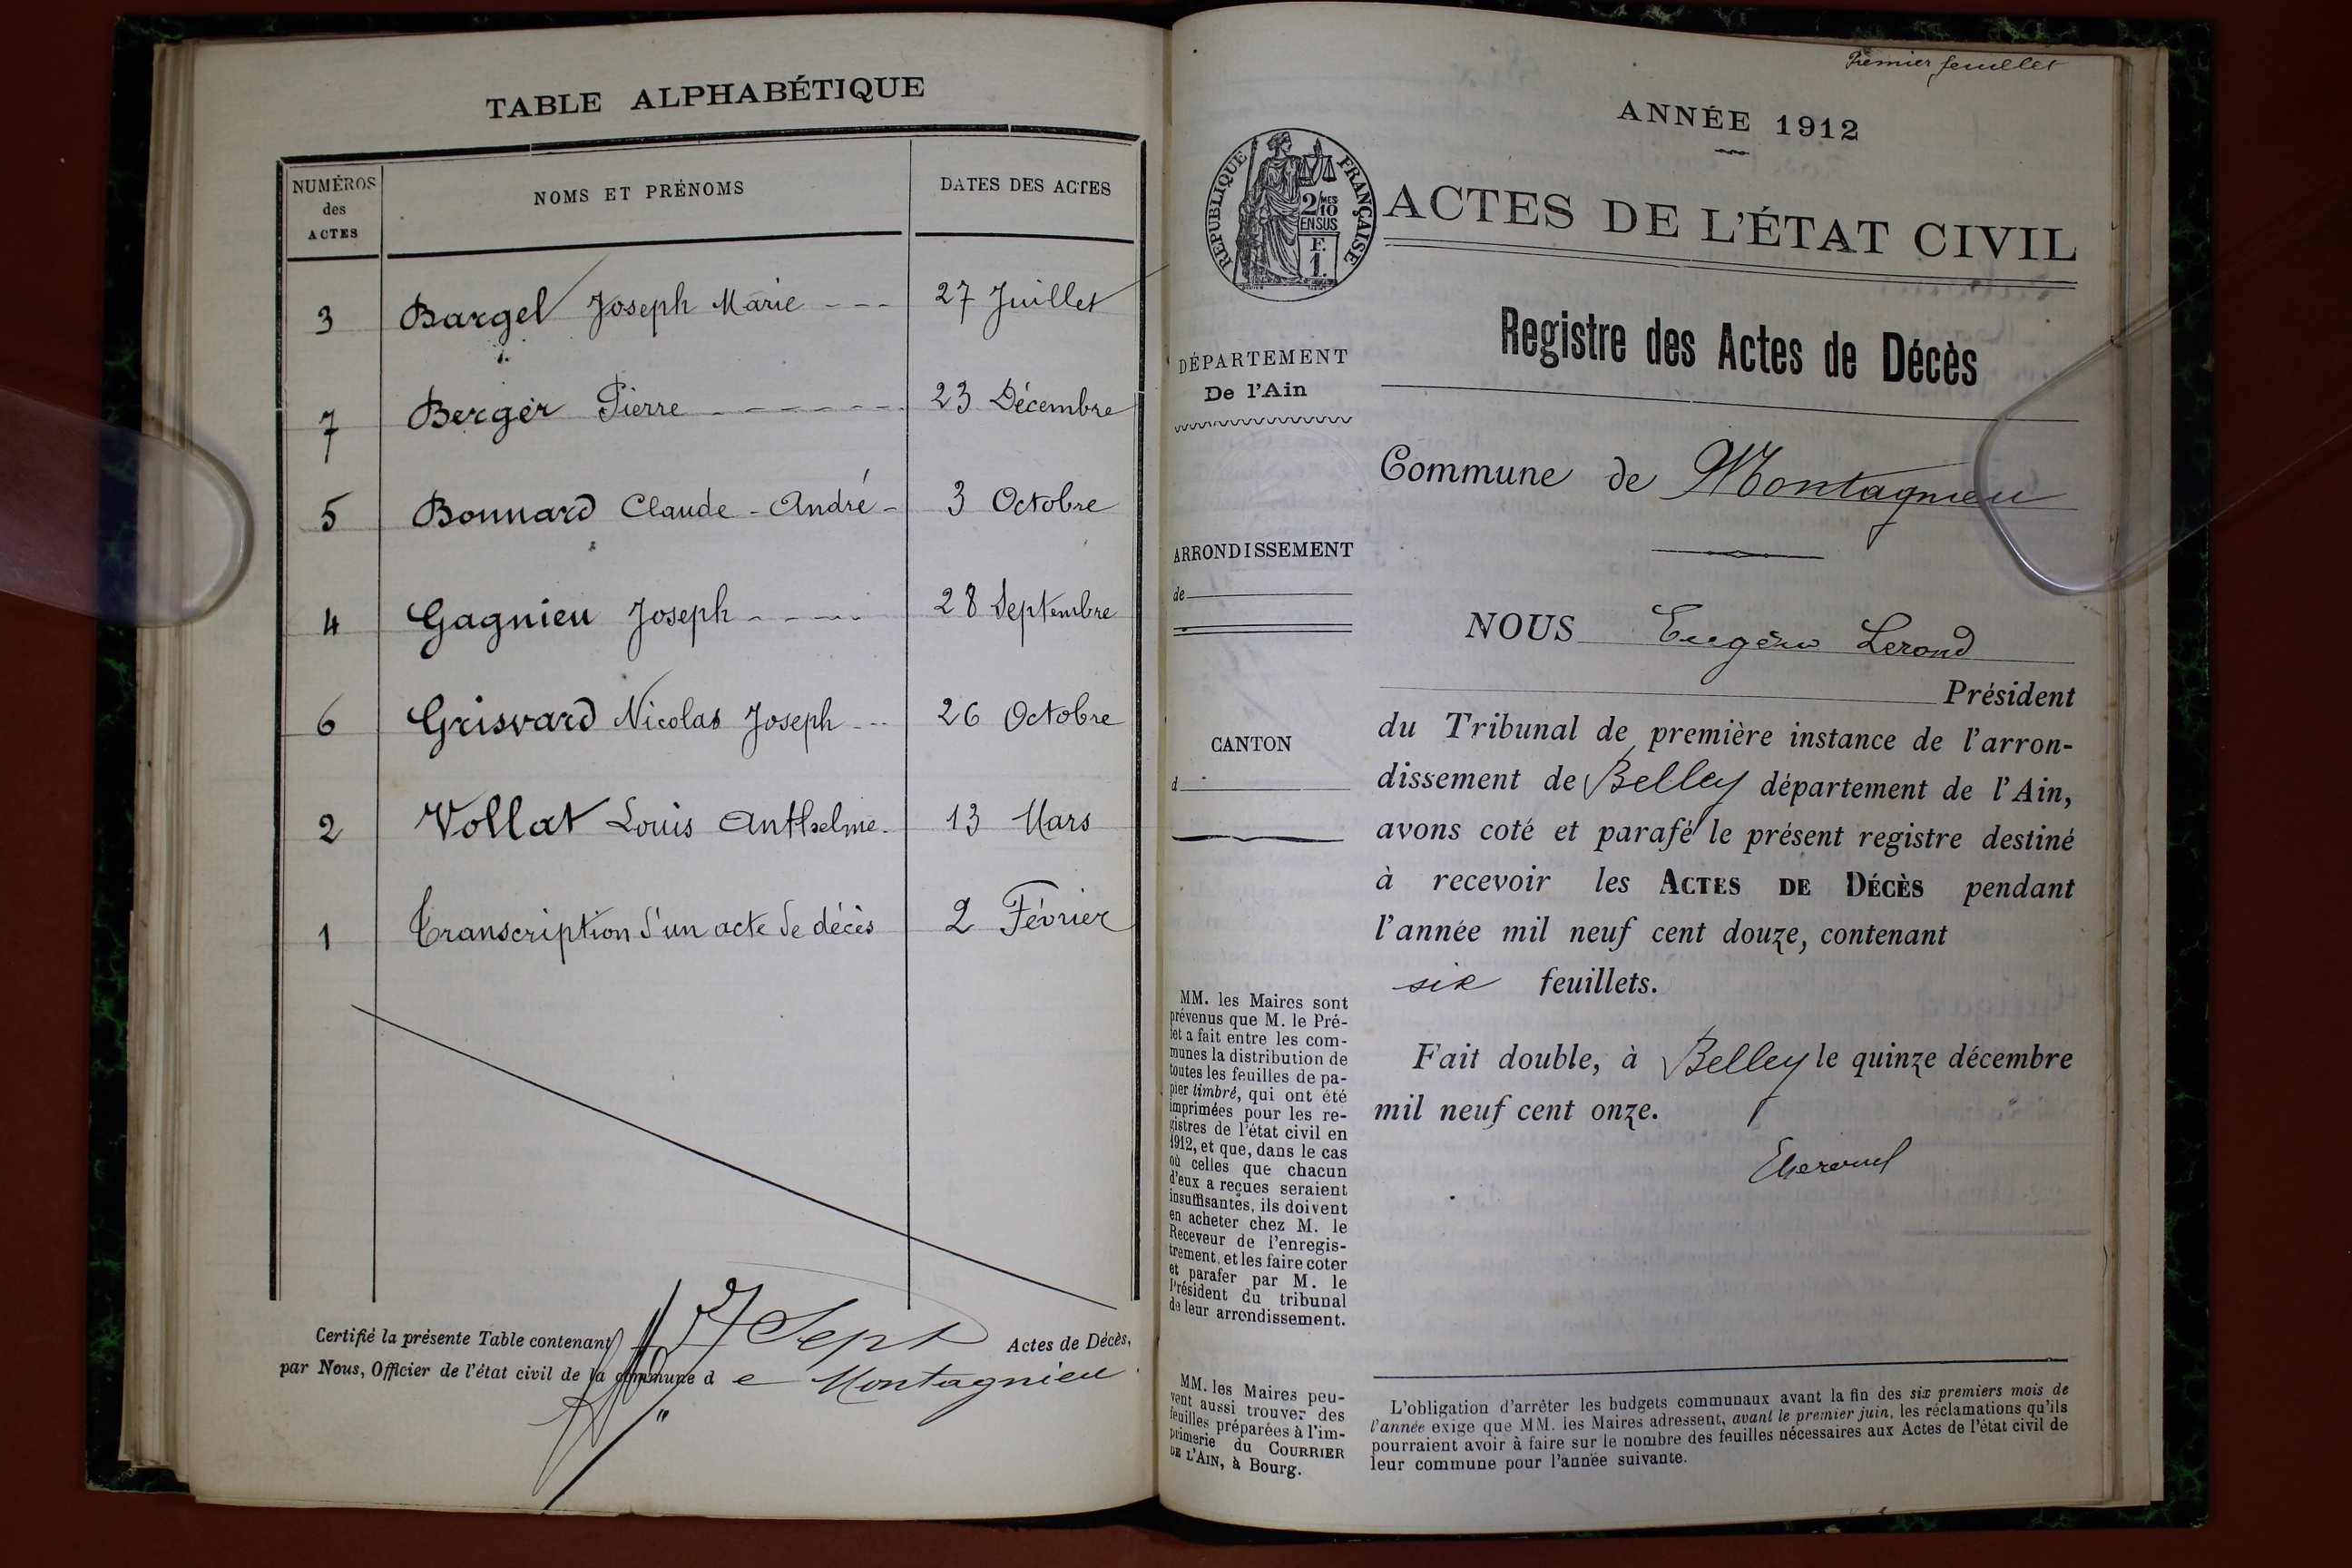 TABLE ALPHABÉTIQUE
NUMÉROS des ACTES
NOMS ET PRÉNOMS
DATES DES ACTES
3 Bargel Joseph Marie --- 27 Juillet
7 Berger Pierre ------- 23 Décembre
5 Bonnard Claude - André - 3 Octobre
4 Gagnieu Joseph ----- 28 Septembre
6 Grisvard Nicolas Joseph --- 26 Octobre
2 Vollat Louis Anthelme - 13 Mars
1 Transcription d'un acte de décès 2 Février
Certifié la présente Table contenant Sept Actes de Décès,
par Nous, Officier de l'état civil de la commune d e Montagnieu
Premier feuillet
ANNÉE 1912
RÉPUBLIQUE FRANÇAISE
2/10 MES
EN SUS
F.
1.
ACTES DE L'ÉTAT CIVIL
Registre des Actes de Décès
DÉPARTEMENT
De l'Ain
Commune de Montagnieu
ARRONDISSEMENT
de
CANTON
d
NOUS Eugène Lerond
Président
du Tribunal de première instance de l'arron-
dissement de Belley département de l'Ain,
avons coté et parafé le présent registre destiné
à recevoir les ACTES DE DÉCÈS pendant
l'année mil neuf cent douze, contenant
six feuillets.
Fait double, à Belley le quinze décembre
mil neuf cent onze.
MM. les Maires sont
prévenus que M. le Pré-
fet a fait entre les com-
munes la distribution de
toutes les feuilles de pa-
pier timbré, qui ont été
imprimées pour les re-
gistres de l'état civil en
1912, et que, dans le cas
où celles que chacun
d'eux a reçues seraient
insuffisantes, ils doivent
en acheter chez M. le
Receveur de l'enregis-
trement, et les faire coter
et parafer par M. le
Président du tribunal
de leur arrondissement.
MM. les Maires peu-
vent aussi trouver des
feuilles préparées à l'im-
primerie du COURRIER
DE L'AIN, à Bourg.
L'obligation d'arrêter les budgets communaux avant la fin des six premiers mois de
l'année exige que MM. les Maires adressent, avant le premier juin, les réclamations qu'ils
pourraient avoir à faire sur le nombre des feuilles nécessaires aux Actes de l'état civil de
leur commune pour l'année suivante.